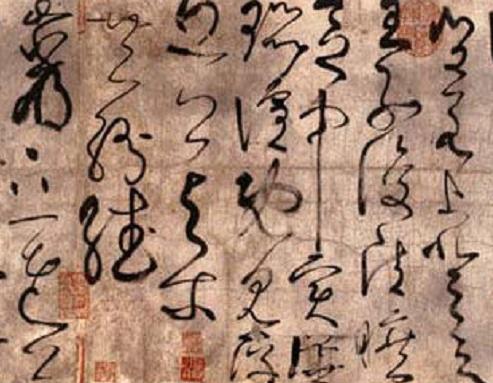 豈若上登天
王子復清曠
區中實譁
囂喧既見浮
丘公與尔
共紛繙
巖下一老公